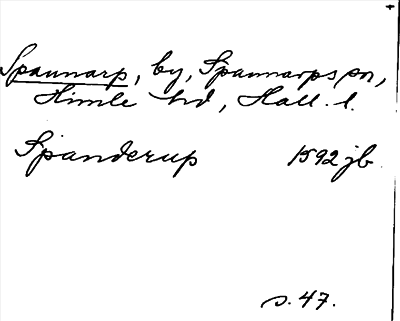 Spannarp, by, Spannarps sn,
Himle hd, Hall. l.
Spanderup 1592 jb.
s. 47.